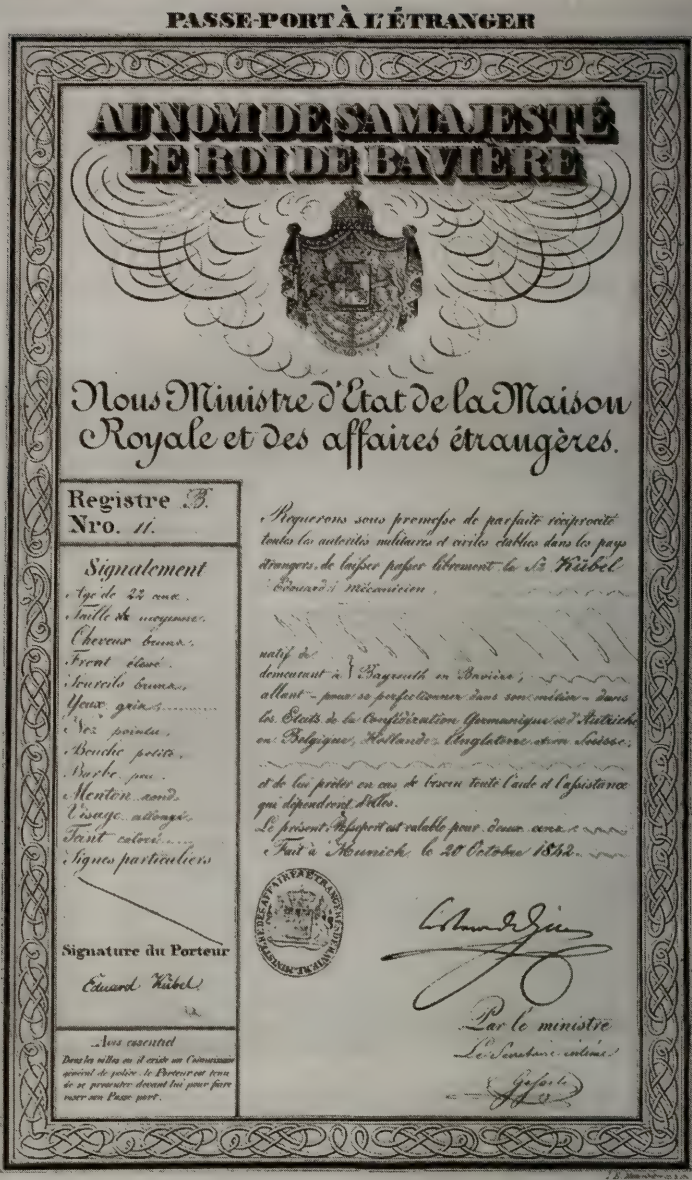 PASSE-PORT À L'ÉTRANGER
AU NOM DE SA MAJESTÉ
LE ROI DE BAVIÈRE
Nous Ministre d'Etat de la Maison
Royale et des affaires étrangères.
Registre B.
Nro. 11.
Signalement
Age de 22 ans.
Taille de moyenne.
Cheveux bruns.
Front élevé.
Sourcils bruns.
Yeux gris
Nez pointu.
Bouche petite.
Barbe peu.
Menton rond.
Visage allongé.
Taint coloré
Signes particuliers
Signature du Porteur
Eduard Kübel.
Avis essentiel
Dans les villes où il existe un Commissaire
général de police, le Porteur est tenu
de se présenter devant lui pour faire
viser son Passe port.
Requerons sous promesse de parfaite réciprocité
toutes les autorités militaires et civiles établies dans les pays
étrangers, de laisser passer librement le Sr. Kübel
Edouard, mécanicien.
natif de
demeurant à } Bayreuth en Bavière,
allant - pour se perfectionner dans son métier - dans
les Etats de la Confédération Germanique et d'Autriche
en Belgique, Hollande, Angleterre et en Suisse.
et de lui prêter en cas de besoin toute l'aide et l'assistance
qui dépendront d'elles.
Le présent Passeport est valable pour deux ans
Fait à Munich, le 20 Octobre 1842.
MINISTÈRE DES AFFAIRES ÉTRANGÈRES DE BAVIÈRE
Par le ministre
Le Secrétaire intime